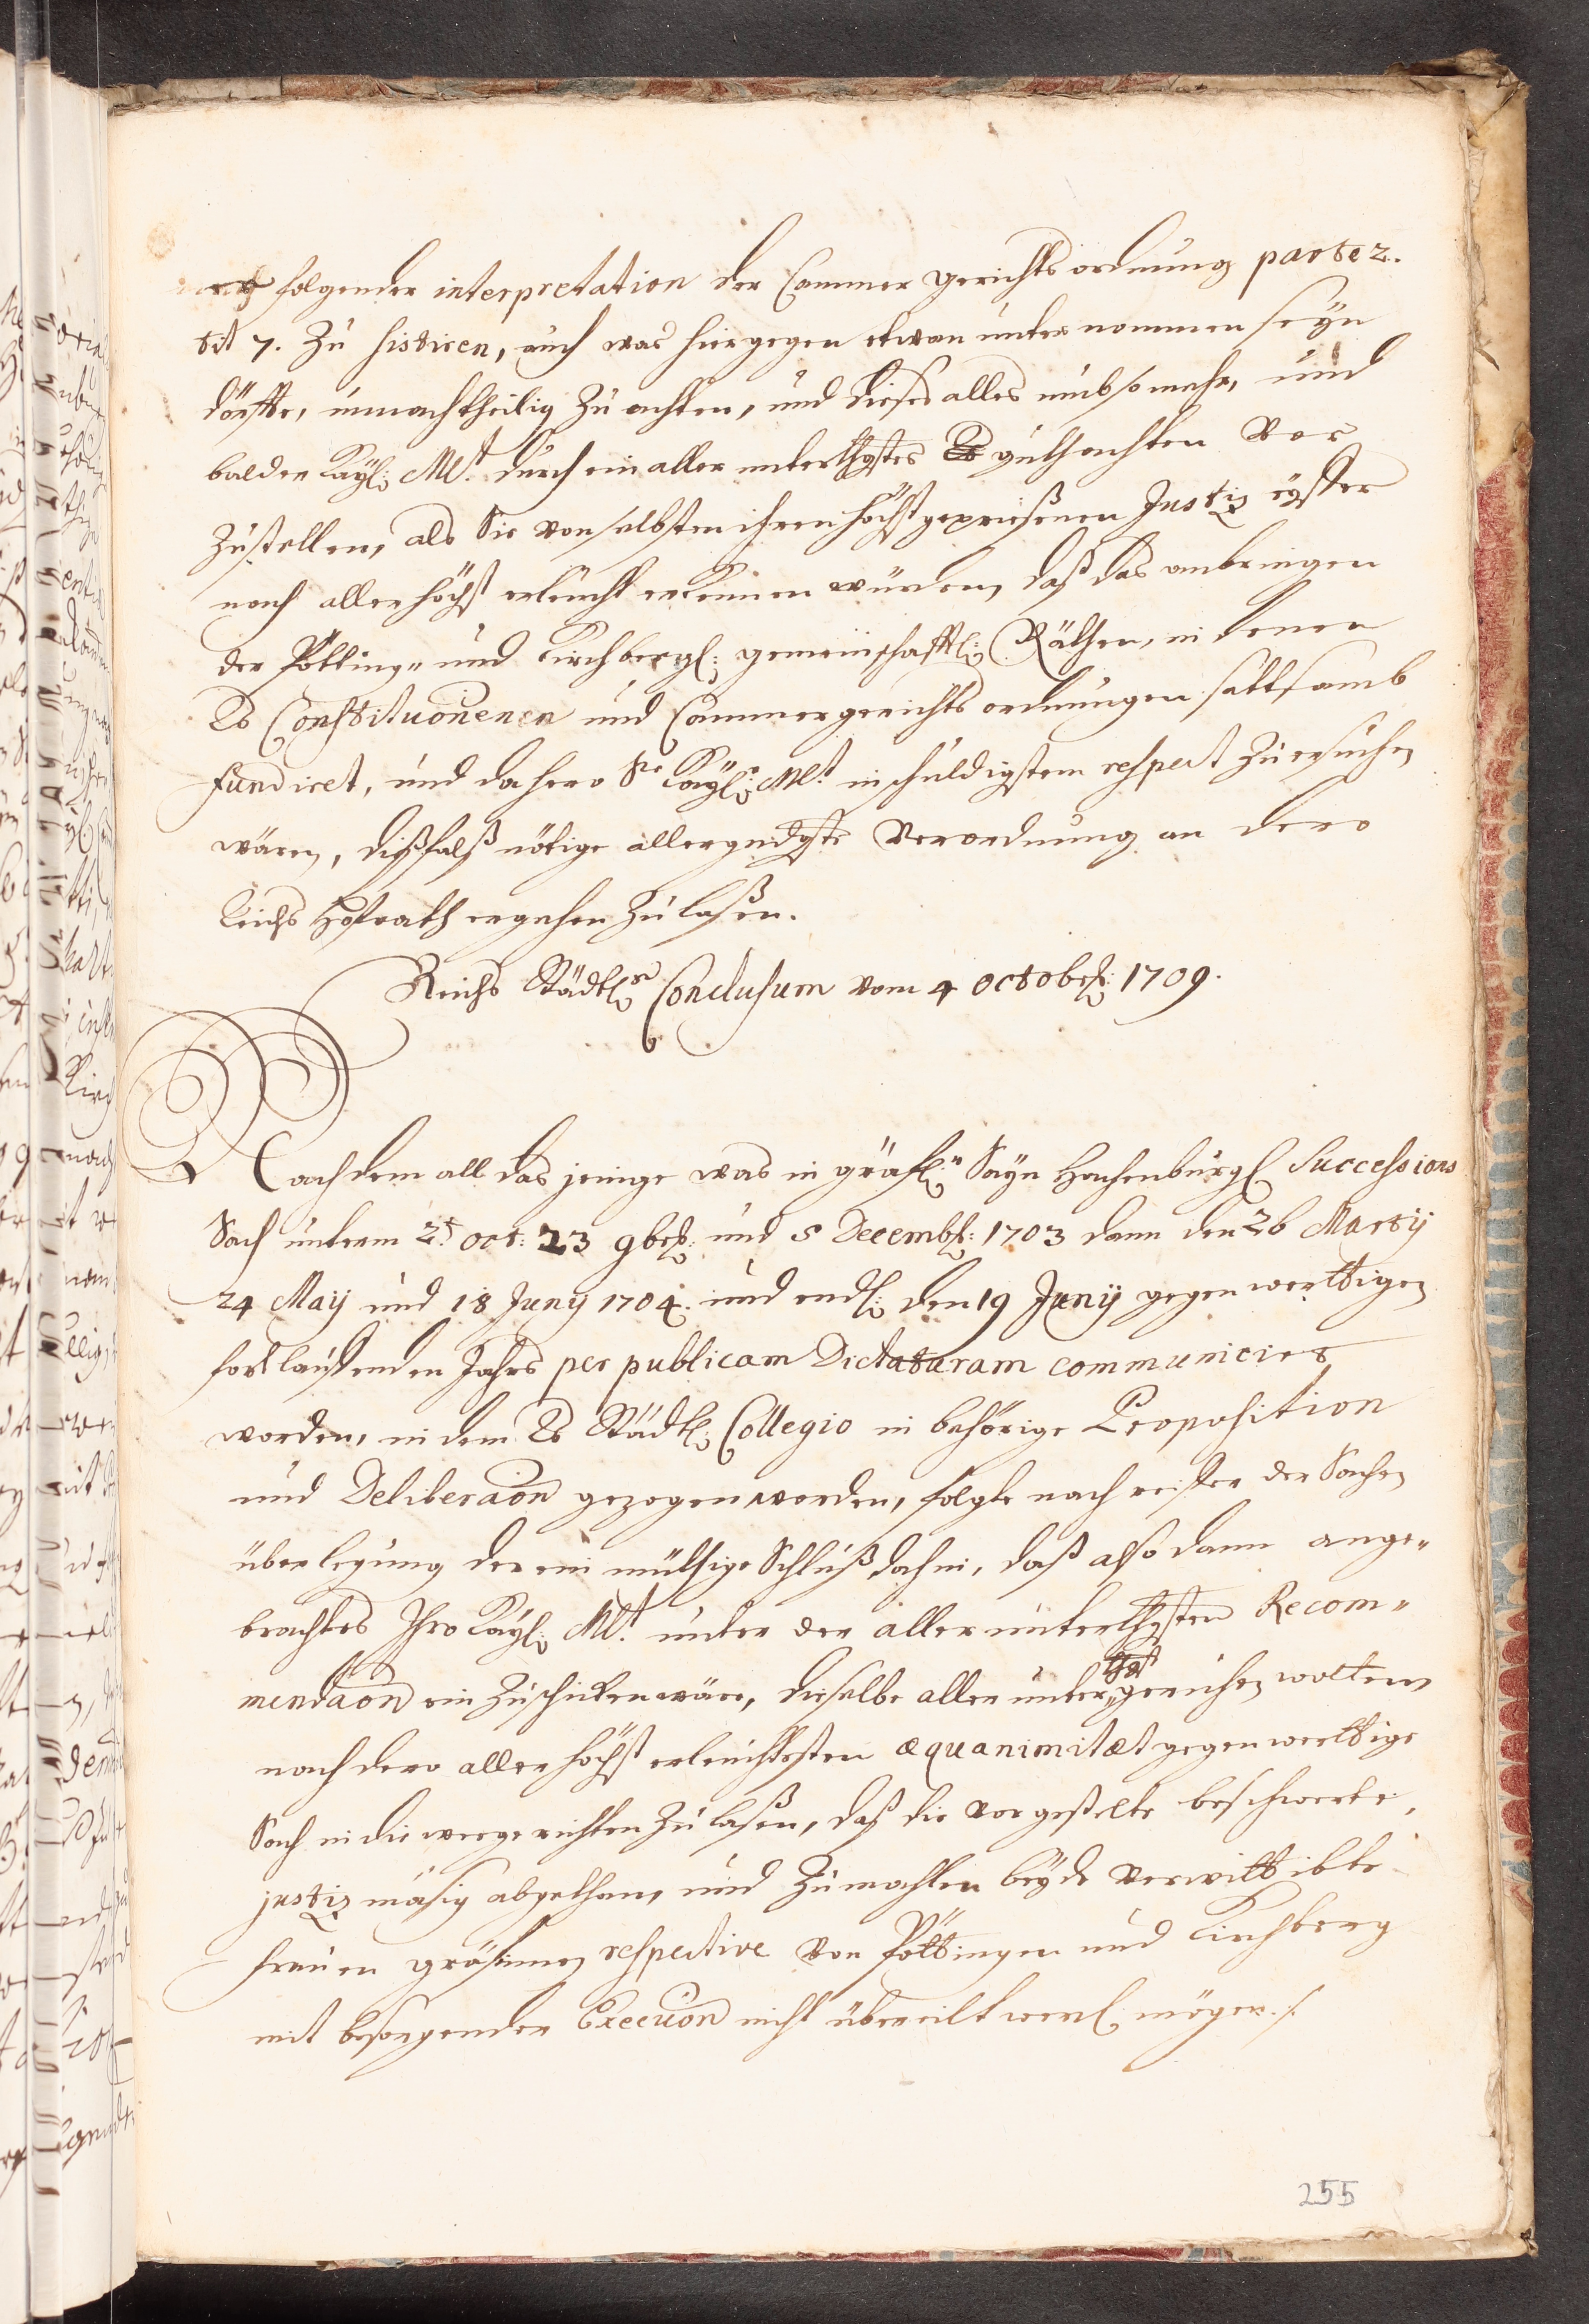 nach folgender interpretation der Cammer gerichts ordnung parte 2.
tit 7. zu sistiren, auch was hiergegen etwan unternommen seyn
dörffte, unnachtheilig zu achten, und dieses alles umb so mehr, und
balder Kayl: Mt. durch ein aller unterthgstes Rs gutachten vor
zustellen, als Sie von selbsten ihren höchstgepriesenen Justiz eyffer
nach allerhöchst erleucht erkennen würden, daß das anbringen
der Pötting- und Kirchbergl: gemeinschafftl: Räthen, in denen
Rs Constitutionen und Cammergerichts ordnungen sattsamb
fundiret, und dahero Sr Kayl: Mt. in schuldigstem respect zu ersuchen
wären, dißfalß nötige allergndgste Verordnung an dero
Reichs Hofrath ergehen zu laßen.
Reichs Städtl: Conclusum vom 4 octobr: 1709.
Nachdem all das jenige was in gräfl: Sayn Hachenburgl Successions
Sach unterm 2t. oct: 23 9br: und 5 Decembr: 1703 dann den 26 Martij
24 Maij und 18 Junij 1704. und endl: den 19 Junij gegenwerttigen
fortlauffenden Jahrs per publicam Dictaturam communicirt
worden, in dem Rs Städtl: Collegio in behörige Proposition
und Deliberaon gezogen worden, folgte nach reiffer der Sachen
überlegung der ein müthige Schluß dahin, daß also dann ange-
brachtes Ihro Kayl: Mt. unter der allerunterthgsten Recom-
mendaon ein zuschicken wäre, dieselbe aller unterthgst geruhen wolten
nach dero allerhöchst erleuchtesten æquanimitæt gegenwerttige
Sach in die weege richten zu laßen, daß die vorgestelte beschwerte,
justiz mäsig abgethan, und zumahlen beyde verwittibte
frauen gräfinnen respective von Pöttingen und Kirchberg
mit besorgender Execuon nicht übereilt werd. mögen ./.
255